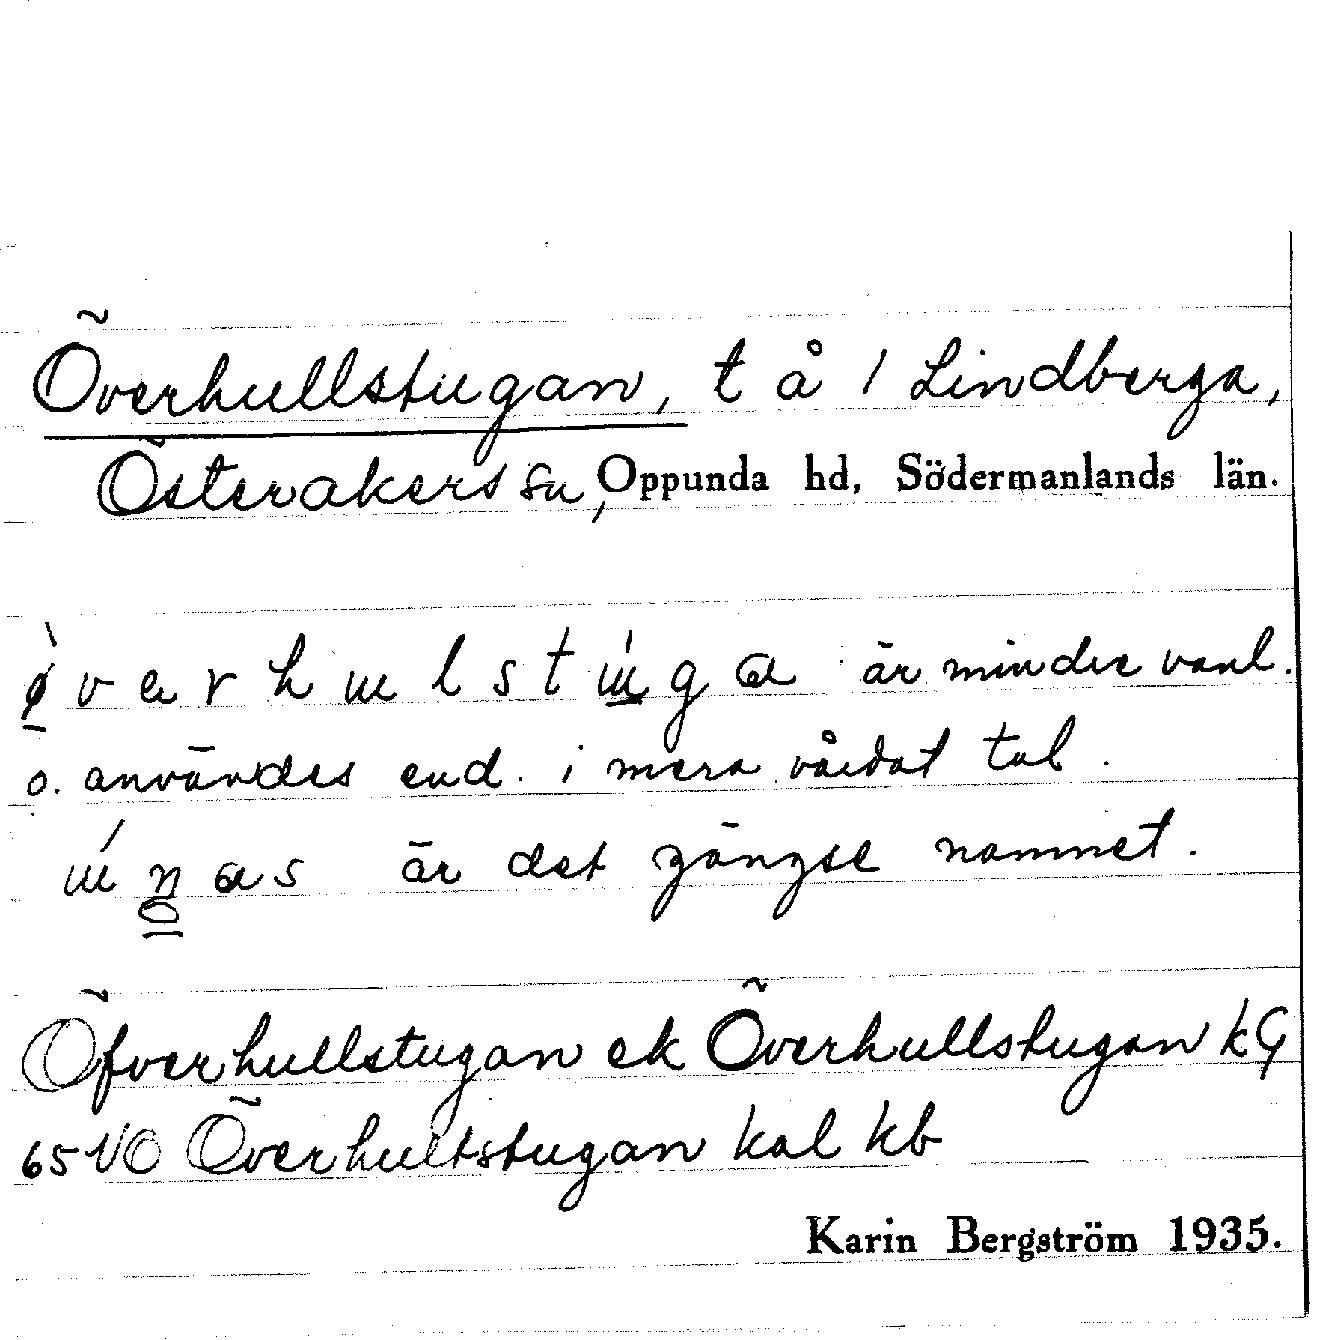 Överhullstugan, t å / Lindberga,
Österåkers sn, Oppunda hd, Södermanlands län.
är mindre vanl.
o. användes end. i mera vårdat tal.
är det gängse namnet.
Öfverhullstugan ek Överhullstugan kG
65 NO Överhultstugan kal kb
Karin Bergström 1935.